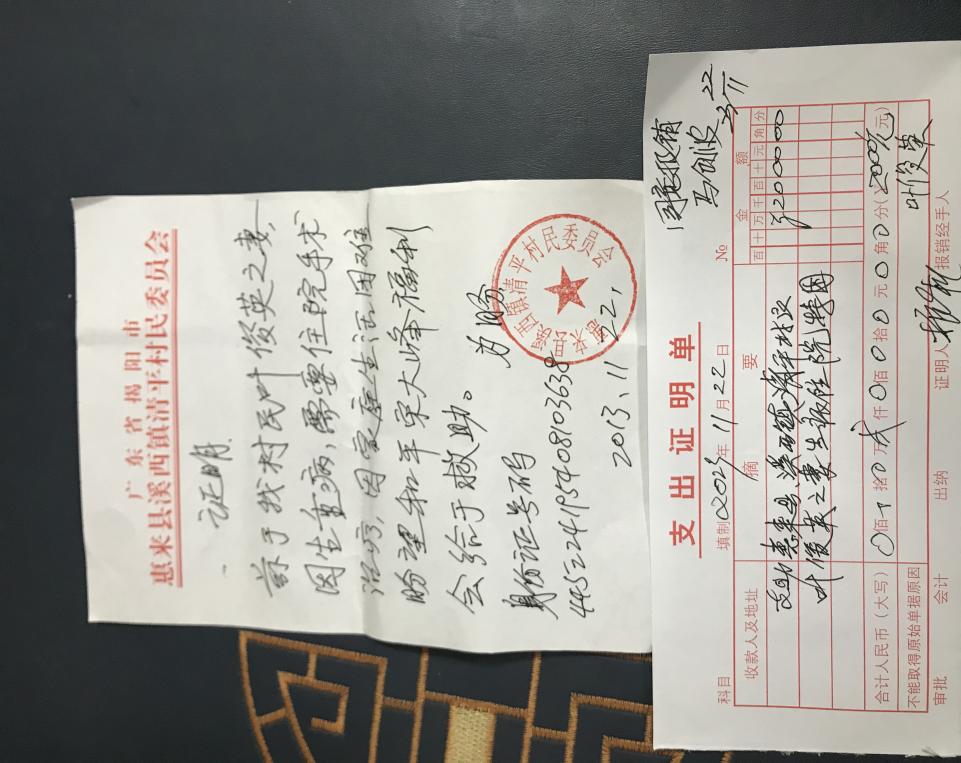 广东省揭阳市
惠来县溪西镇清平村民委员会
证明
兹于我村民叶俊英之妻,
因生重病,需要住院手术
治疗,因家庭生活困难
盼望和平宋大峰福利
会给于救助。为盼
身份证号码
445224195408103638
2013.11 22.
惠来县溪西镇清平村民委员会
同意报销
马创波
22/11
支出证明单
科目
填制 年 11 月 22 日
№
收款人及地址
摘要
金额
百十万千百十元角分
惠来县溪西镇清平村
叶俊英之妻生病住院费用
¥200000
合计人民币(大写) 0佰 拾0万 弍仟0佰0拾0元0角0分(¥2000元)
不能取得原始单据原因
审批
会计
出纳
证明人
报销经手人
叶俊英